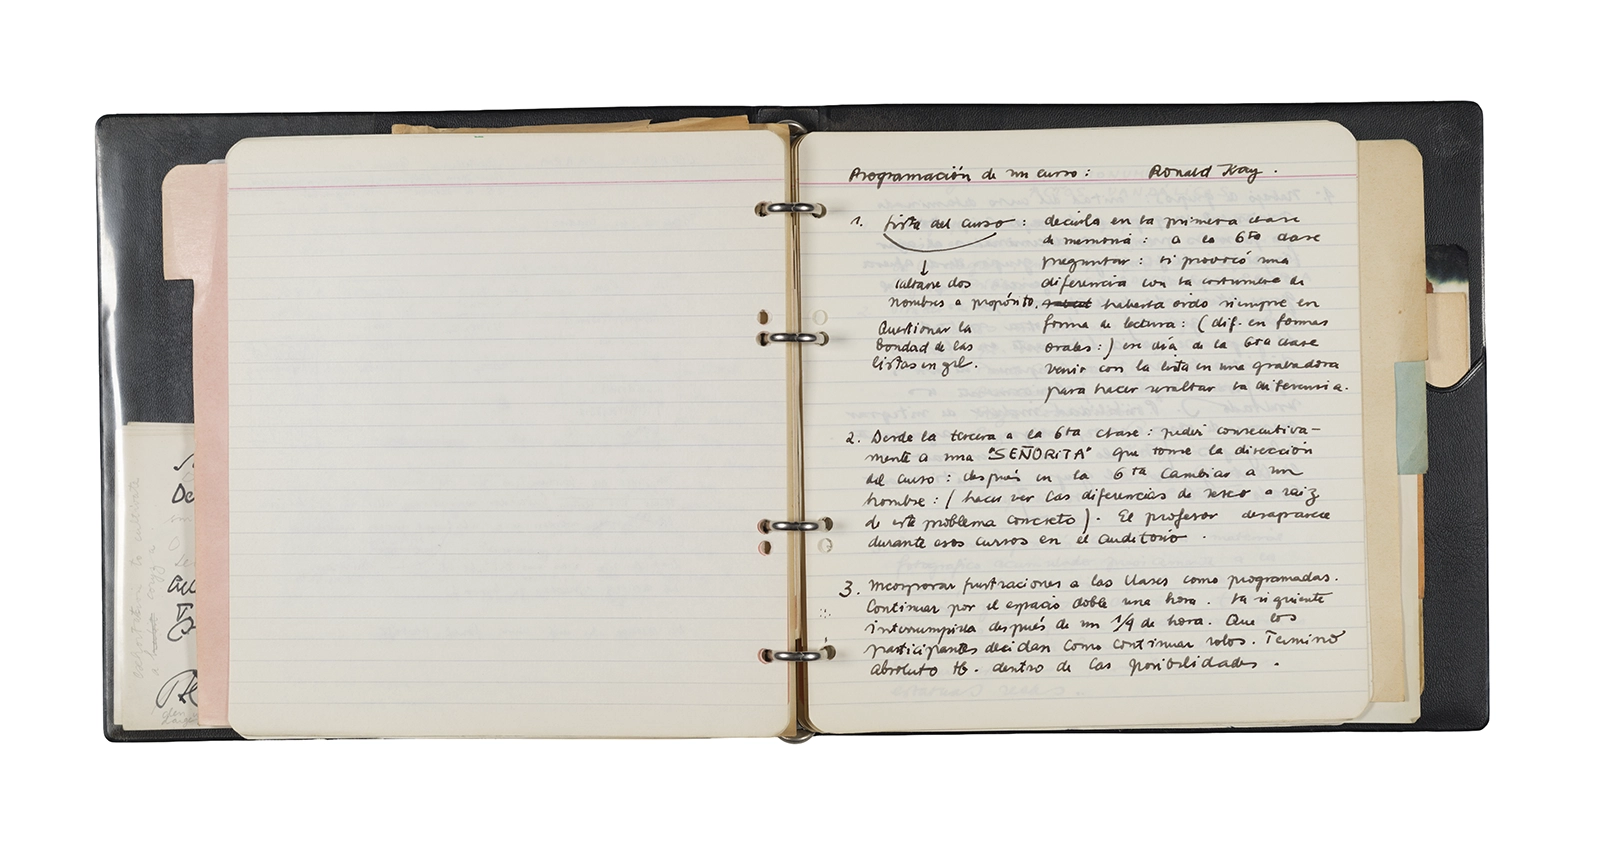 Programación de un curso: Ronald Kay.
1. lista del curso: decirla en la primera clase
de memoria: a la 6ta clase
preguntar: si provocó una
diferencia con la costumbre de
haberla oido siempre en
forma de lectura: (dif. en formas
orales:) ese día de la 6ta clase
venir con la lista en una grabadora
para hacer resaltar la diferencia.
↓
saltarse dos
nombres a propósito.
Questionar la
bondad de las
listas en grl.
2. Desde la tercera a la 6ta clase: pedir consecutiva-
mente a una "SEÑORITA" que tome la dirección
del curso: después en la 6ta cambiar a un
hombre: (hacer ver las diferencias de sexo a raiz
de este problema concreto). El profesor desaparece
durante esos cursos en el auditorio.
3. Incorporar frustraciones a las clases como programadas.
Continuar por el espacio doble una hora. La siguiente
interrumpirla después de un 1/4 de hora. Que los
participantes decidan como continuar solos. Termino
absoluto tb. dentro de las posibilidades.
De